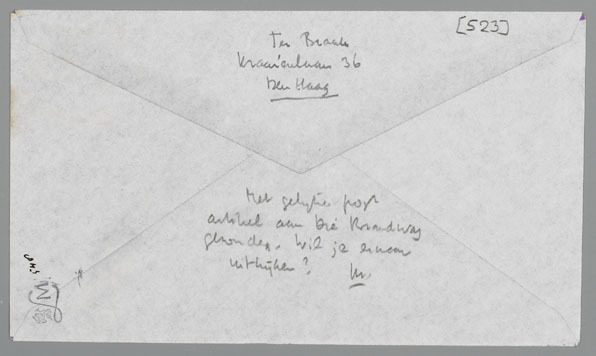 [523]
Ter Braak
Kraaienlaan 36
Den Haag
Met gelijke post
artikel aan Die Brandwag
gezonden. Wil je ernaar
uitkijken? M.